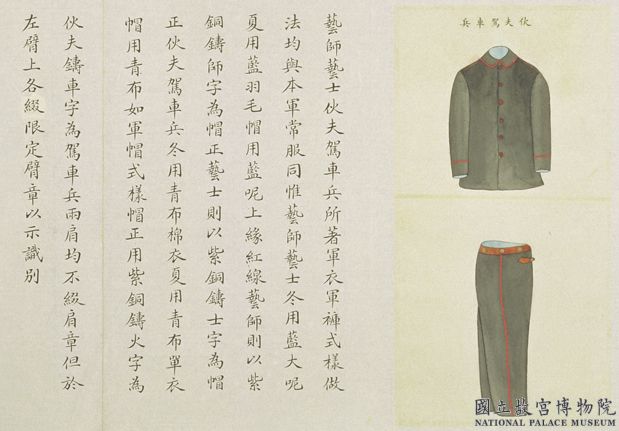 兵車駕夫伙
藝師藝士伙夫駕車兵所著軍衣軍褲式樣做
法均與本軍常服同惟藝師藝士冬用藍大呢
夏用藍羽毛帽用藍呢上緣紅線藝師則以紫
銅鑄師字為帽正藝士則以紫銅鑄士字為帽
正伙夫駕車兵冬用青布棉衣夏用青布單衣
帽用青布如軍帽式樣帽正用紫銅鑄火字為
伙夫鑄車字為駕車兵兩肩均不綴肩章但於
左臂上各綴限定臂章以示識別
國立故宮博物院
NATIONAL PALACE MUSEUM